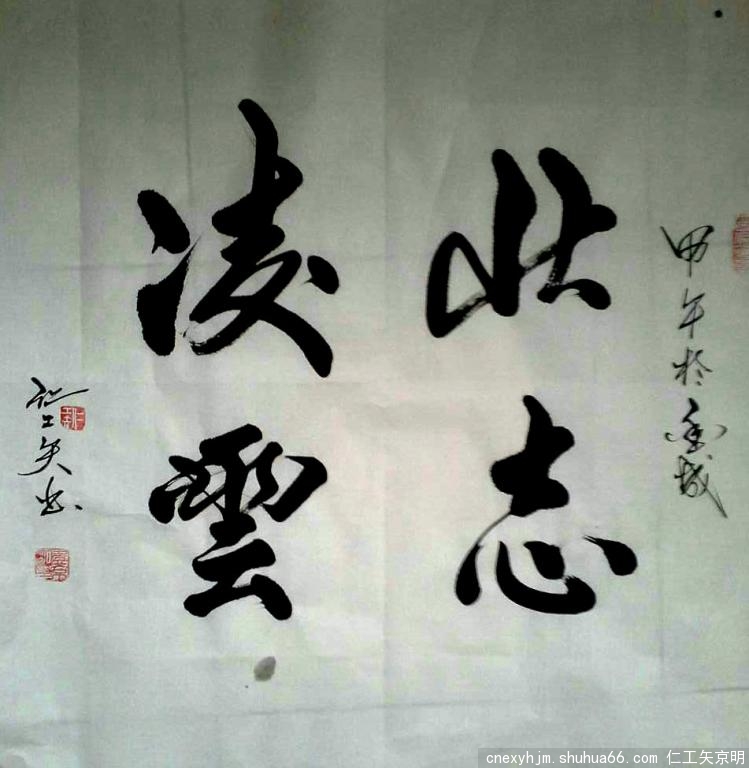 甲午於城
壮志
凌雲
仁工矢书
cnexyhjm.shuhua66.com 仁工矢京明